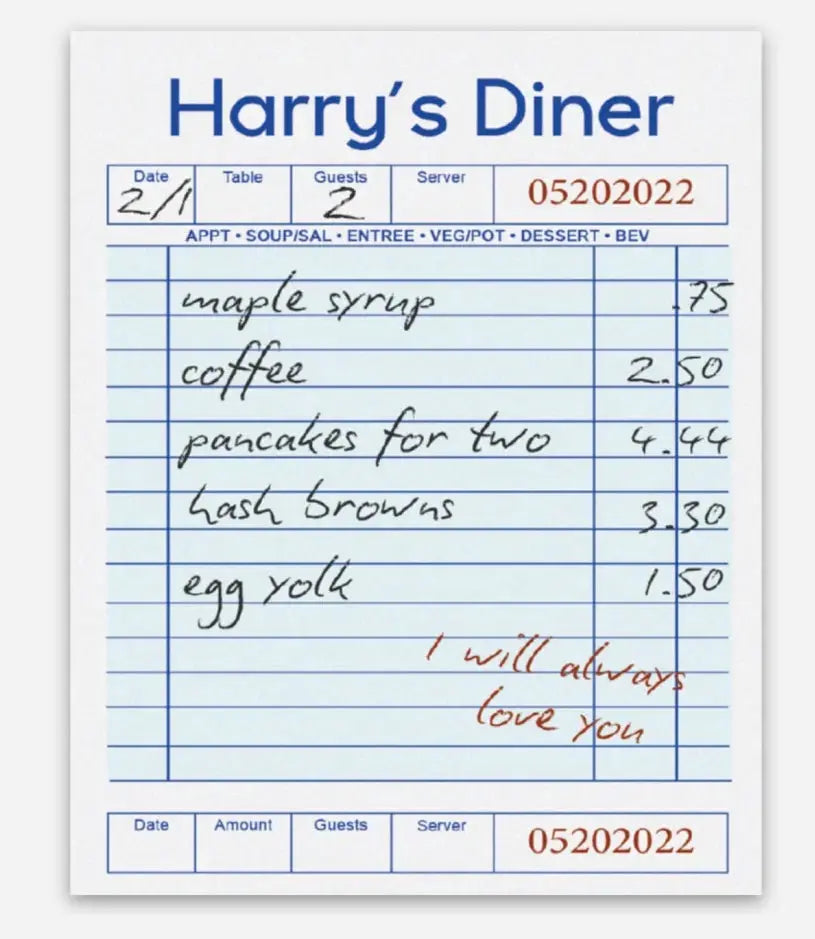 Harry's Diner
Date Table Guests Server 05202022
2/1 2
APPT • SOUP/SAL • ENTREE • VEG/POT • DESSERT • BEV
maple syrup .75
coffee 2.50
pancakes for two 4.44
hash browns 3.30
egg yolk 1.50
I will always
love you
Date Amount Guests Server 05202022